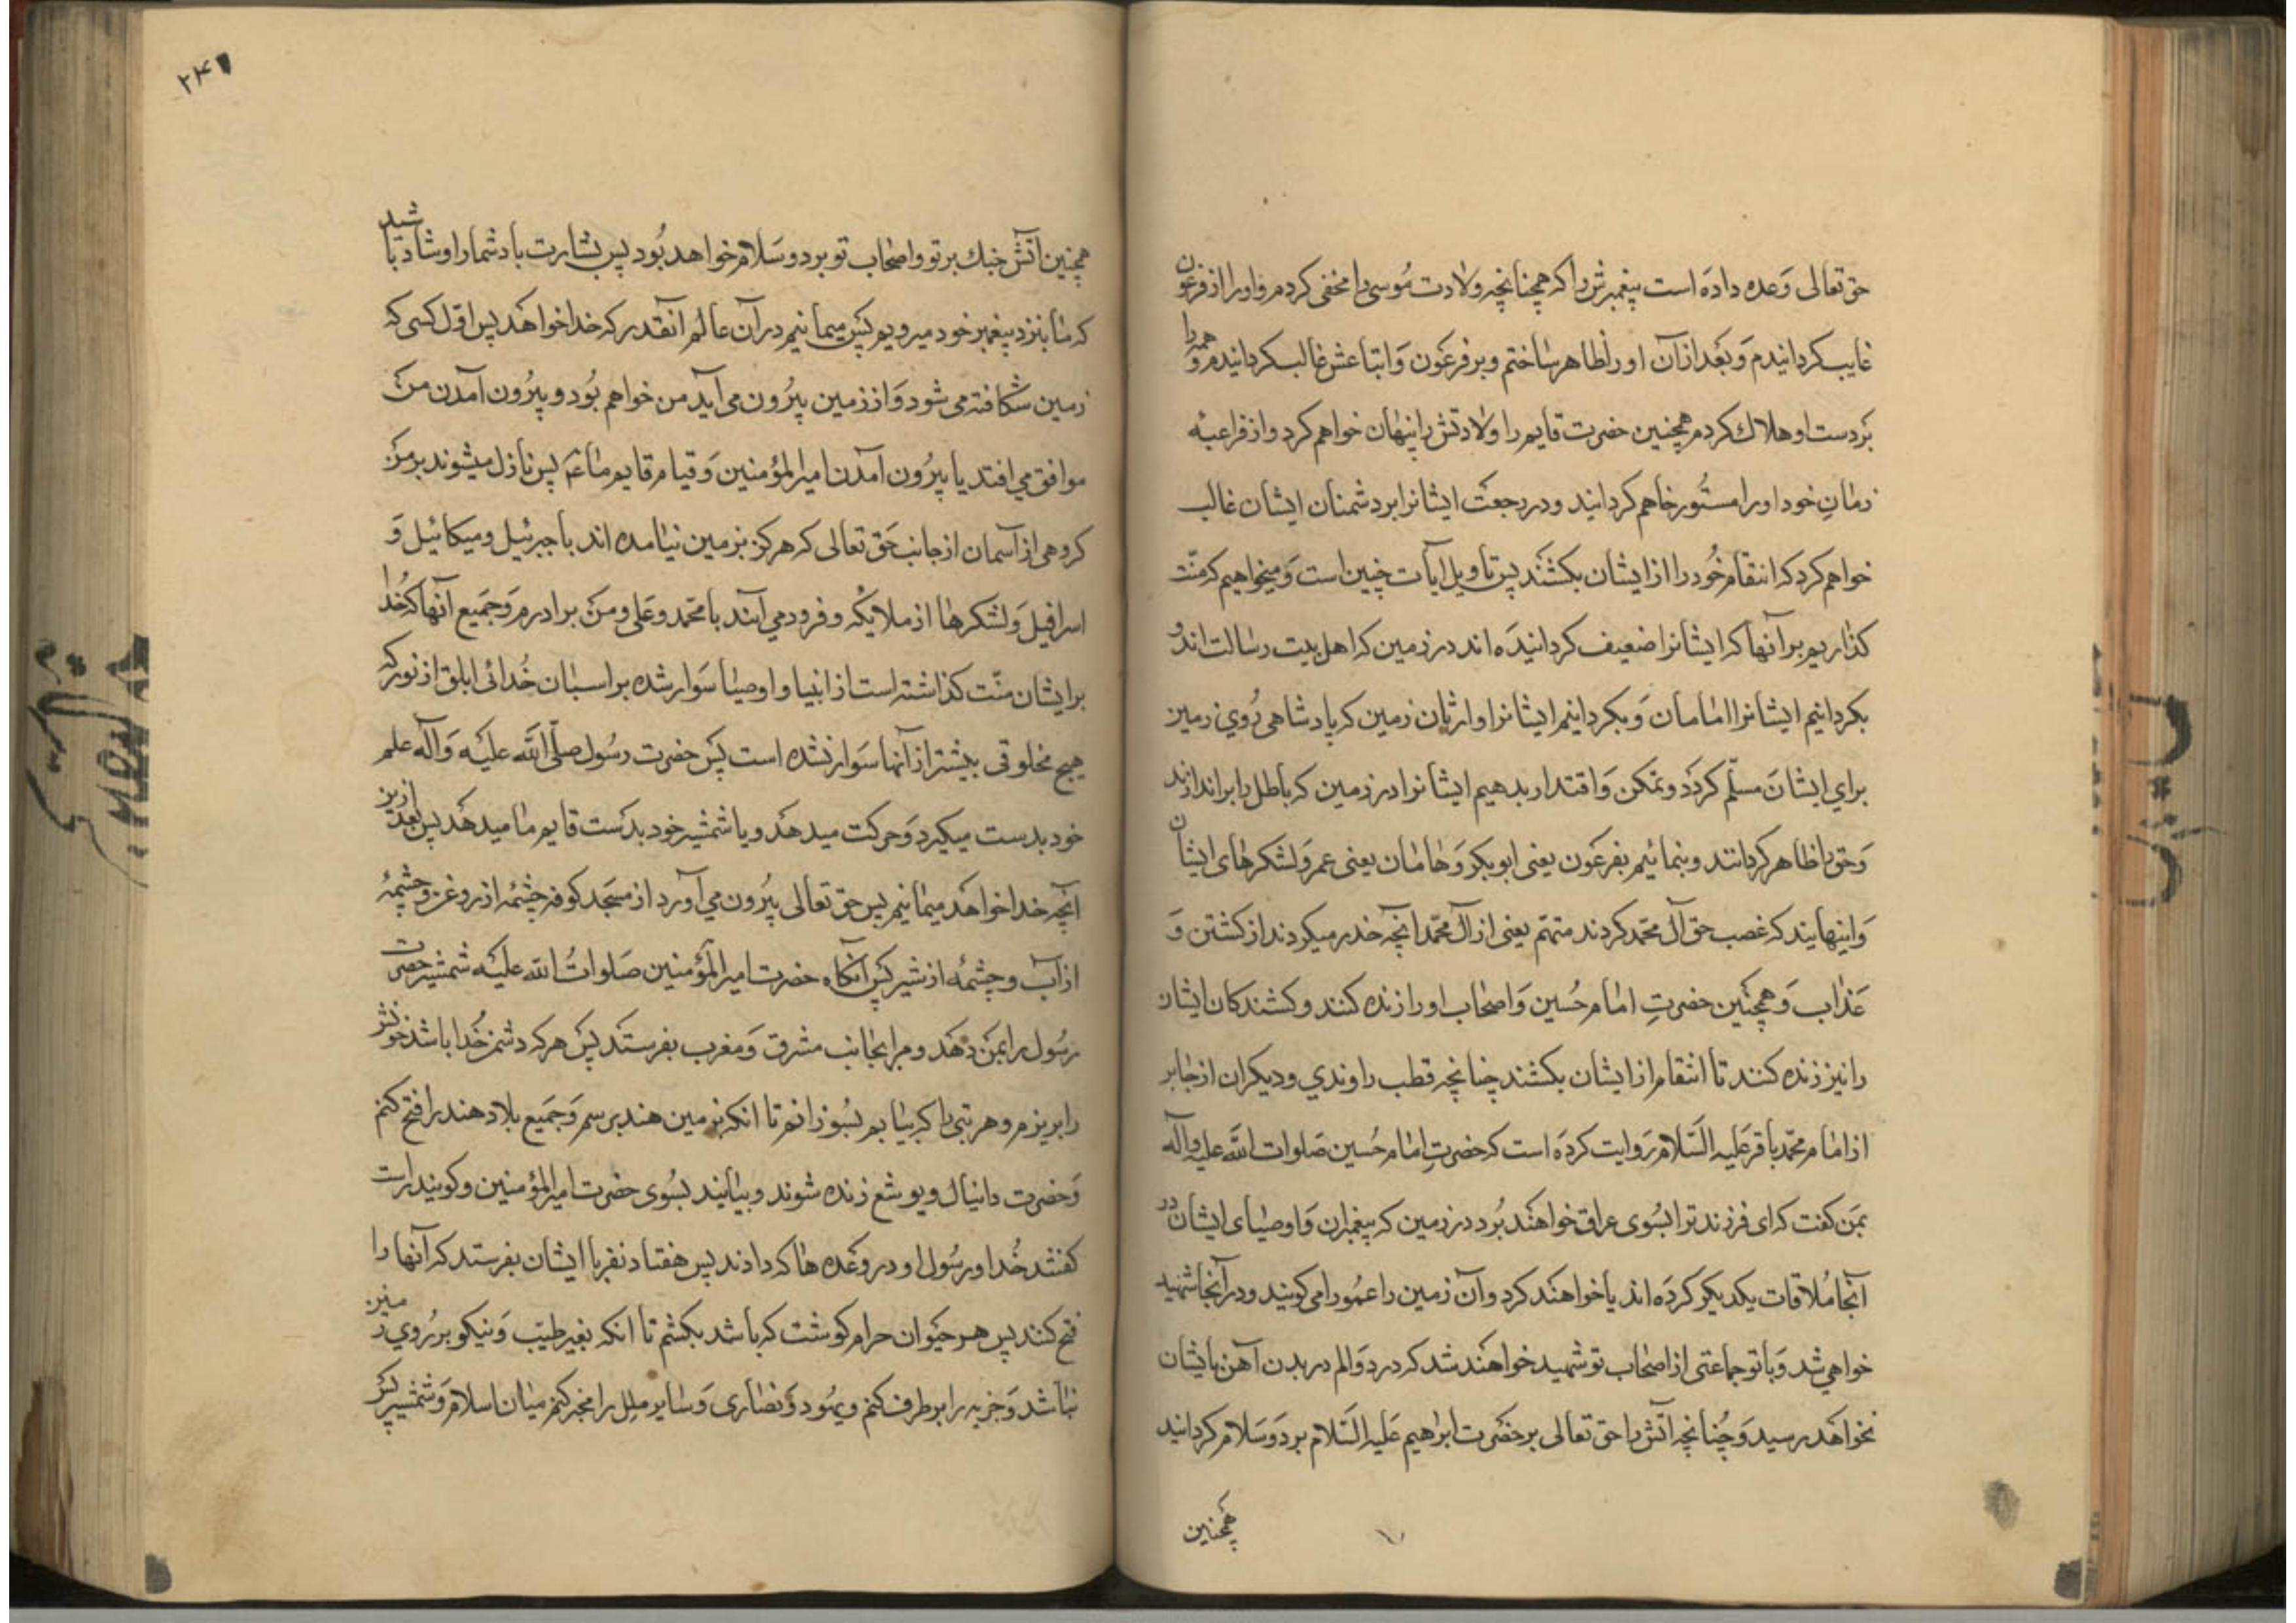 حق تعالی وعده داده است پیغمبرش را که همچنانچه ولادت موسی را مخفی کردم و او را از فرعون
غایب کردانیدم و بعد از آن او را ظاهر ساختم و بر فرعون و اتباعش غالب کردانیدم و همه را
بر دست او هلاك کردم همچنین حضرت قایم را ولادتش را پنهان خواهم کرد و از فراعنه
زمان خود او را مستور خاهم کردانید و در رجعت ایشانرا بر دشمنان ایشان غالب
خواهم کرد که انتقام خود را از ایشان بکشند پس تاویل آیات چنین است و میخواهیم که منّت
کذاریم بر آنها که ایشانرا ضعیف کردانیده اند در زمین که اهل بیت رسالت اند و
بکردانیم ایشانرا امامان و بکردانیم ایشانرا وارثان زمین که پادشاهی روی زمین
برای ایشان مسلّم کردد و تمکن و اقتدار بدهیم ایشانرا در زمین که باطل را براندازند
و حق را ظاهر کردانند و بنمائیم بفرعون یعنی ابوبکر و هامان یعنی عمر و لشکرهای ایشان
و اینهایند که غصب حق آل محمد کردند منهم یعنی از آل محمد آنچه حذر میکردند از کشتن و
عذاب و همچنین حضرت امام حسین و اصحاب او را زنده کنند و کشندکان ایشان
را نیز زنده کنند تا انتقام از ایشان بکشند چنانچه قطب راوندی و دیکران از جابر
از امام محمد باقر علیه السلام روایت کرده است که حضرت امام حسین صلوات الله علیه وآله
بمن کفت که ای فرزند ترا بسوی عراق خواهند برد در زمین که پیغمبران و اوصیای ایشان در
آنجا ملاقات یکدیکر کرده اند یا خواهند کرد و آن زمین را عمورا می کویند و در آنجا شهید
خواهی شد و با تو جماعتی از اصحاب تو شهید خواهند شد که درد و الم در بدن آهن بایشان
نخواهد رسید و چنانچه آتش را حق تعالی بر حضرت ابراهیم علیه السلام برد و سلام کردانید
همچنین
۲۴۱
همچنین آتش جنك بر تو و اصحاب تو برد و سلام خواهد بود پس بشارت باد شما را و شاد باشید
که ما بنزد پیغمبر خود میرویم پس میمانیم در آن عالم آنقدر که خدا خواهد پس اوّل کسی که
زمین شکافته می شود و از زمین بیرون می آید من خواهم بود و بیرون آمدن من
موافق می افتد با بیرون آمدن امیرالمؤمنین و قیام قایم ما پس نازل میشوند بر من
کروهی از آسمان از جانب حق تعالی که هرکز بزمین نیامده اند با جبرئیل و میکائیل و
اسرافیل و لشکرها از ملایکه و فرود می آیند با محمد و علی و من و برادرم و جمیع آنها که خدا
بر ایشان منّت کذاشته است از انبیا و اوصیا سوار شده بر اسبان خدائی ابلق از نور که
هیچ مخلوقی بیشتر از آنها سوار نشده است پس حضرت رسول صلّی الله علیه وآله علم
خود بدست میکیرد و حرکت میدهد و با شمشیر خود بدست قایم ما میدهد پس بعد ازین
آنچه خدا خواهد میمانیم پس حق تعالی بیرون می آورد از مسجد کوفه چشمهٔ از روغن و چشمهٔ
از آب و چشمهٔ از شیر پس آنکاه حضرت امیرالمؤمنین صلوات الله علیه شمشیر حضرت
رسول را بمن دهد و مرا بجانب مشرق و مغرب بفرستد پس هر که دشمن خدا باشد خونش
را بریزم و هر بتی را که بیابم بسوزانم تا آنکه بزمین هند برسم و جمیع بلاد هند را فتح کنم
و حضرت دانیال و یوشع زنده شوند و بیایند بسوی حضرت امیرالمؤمنین و کویند راست
کفتند خدا و رسول او در وعده ها که دادند پس هفتاد نفر با ایشان بفرستد که آنها را
فتح کنند پس هر حیوان حرام کوشت که باشد بکشم تا آنکه بغیر طیّب و نیکو بر روی زمین
نباشد و جزیه را برطرف کنم و یهود و نصاری و سایر ملل را مخیر کنم میان اسلام و شمشیر پس